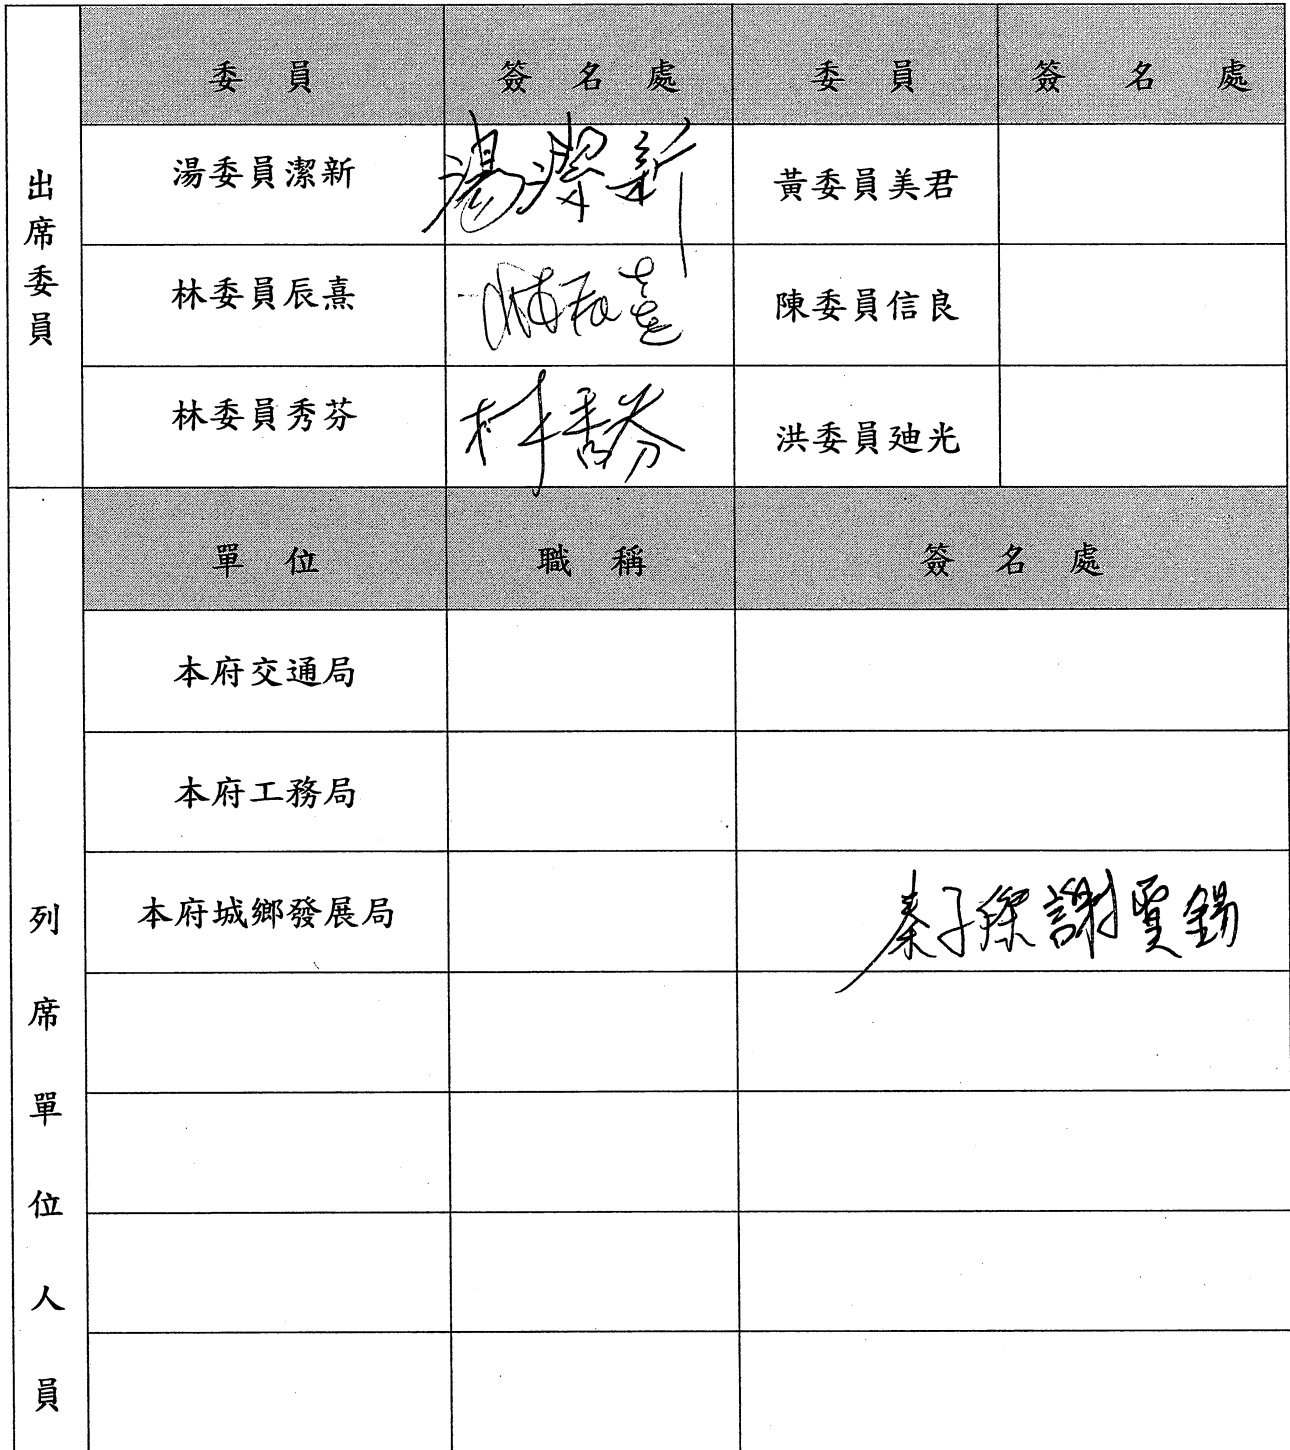 出席委員
委員 簽名處 委員 簽名處
湯委員潔新 湯潔新 黃委員美君
林委員辰熹 林辰熹 陳委員信良
林委員秀芬 林秀芬 洪委員廸光
列席單位人員
單位 職稱 簽名處
本府交通局
本府工務局
本府城鄉發展局 秦子傑 謝賢錫